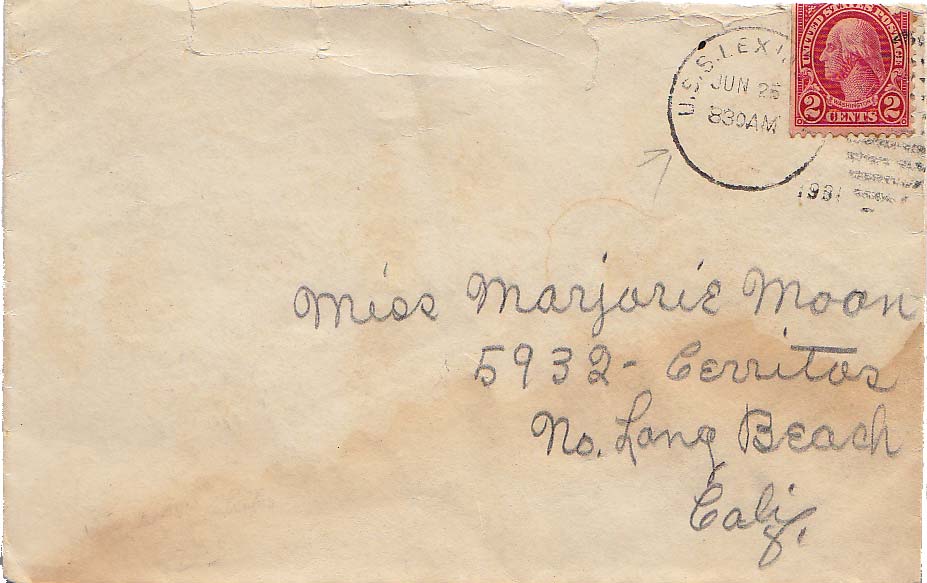 U.S.S. LEXIN
JUN 25
830AM
1931
UNITED STATES POSTAGE
WASHINGTON
2 CENTS 2
Miss Marjorie Moon
5932- Cerritos
No. Long Beach
Calif.